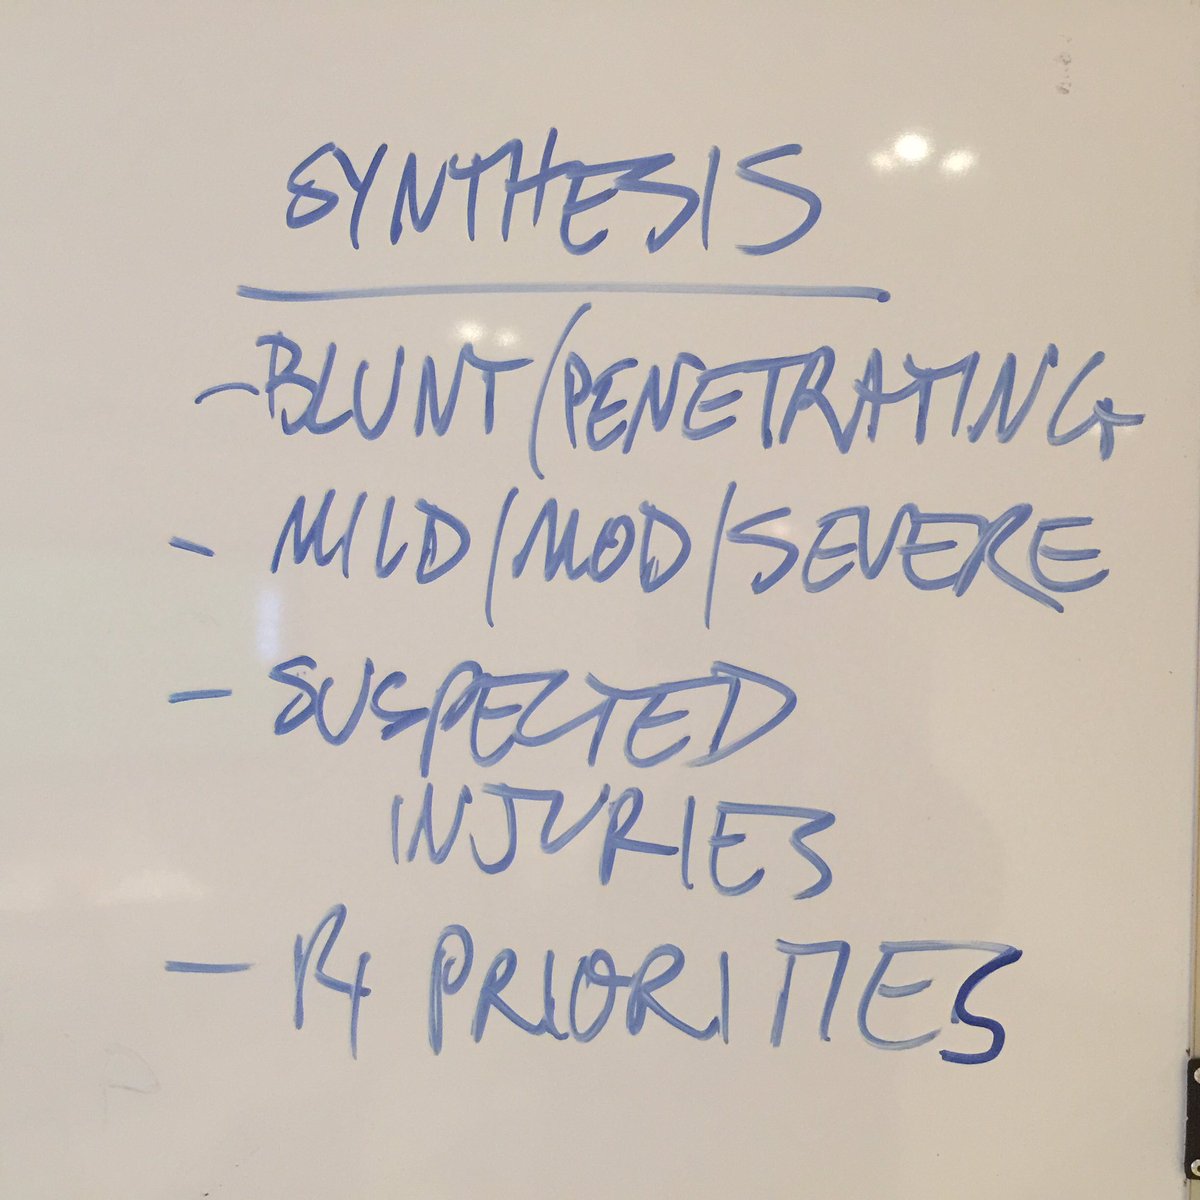 SYNTHESIS
- BLUNT/PENETRATING
- MILD/MOD/SEVERE
- SUSPECTED
INJURIES
- Rx PRIORITIES